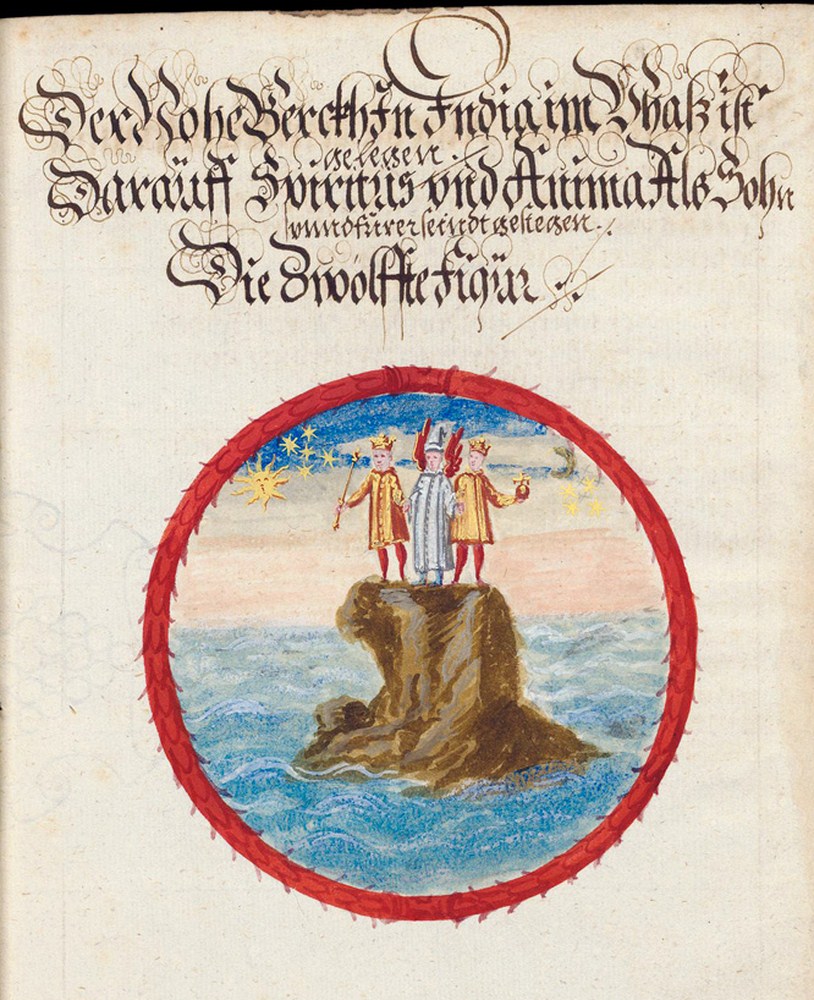 Der Hohe Berckh In Indiga im Vhaß ist
gelegen .
Darauff Spiritus vnd Anima Als Sohn
vnnd fürer seindt gestegen .
Die Zwölffte Figur .